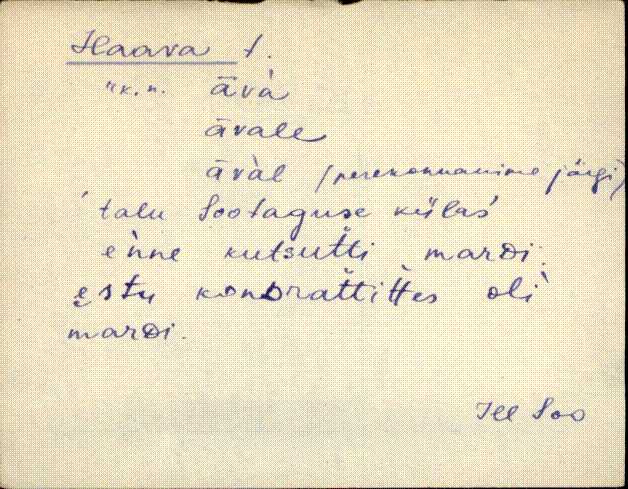 Haava t.
"k.n. āvà
āvale
āvàl (perekonnanime järgi)
talu Sootaguse külas
enne kutsutti mardi.
estu konᴅrattittes oli
marᴅi.
Jll Soo